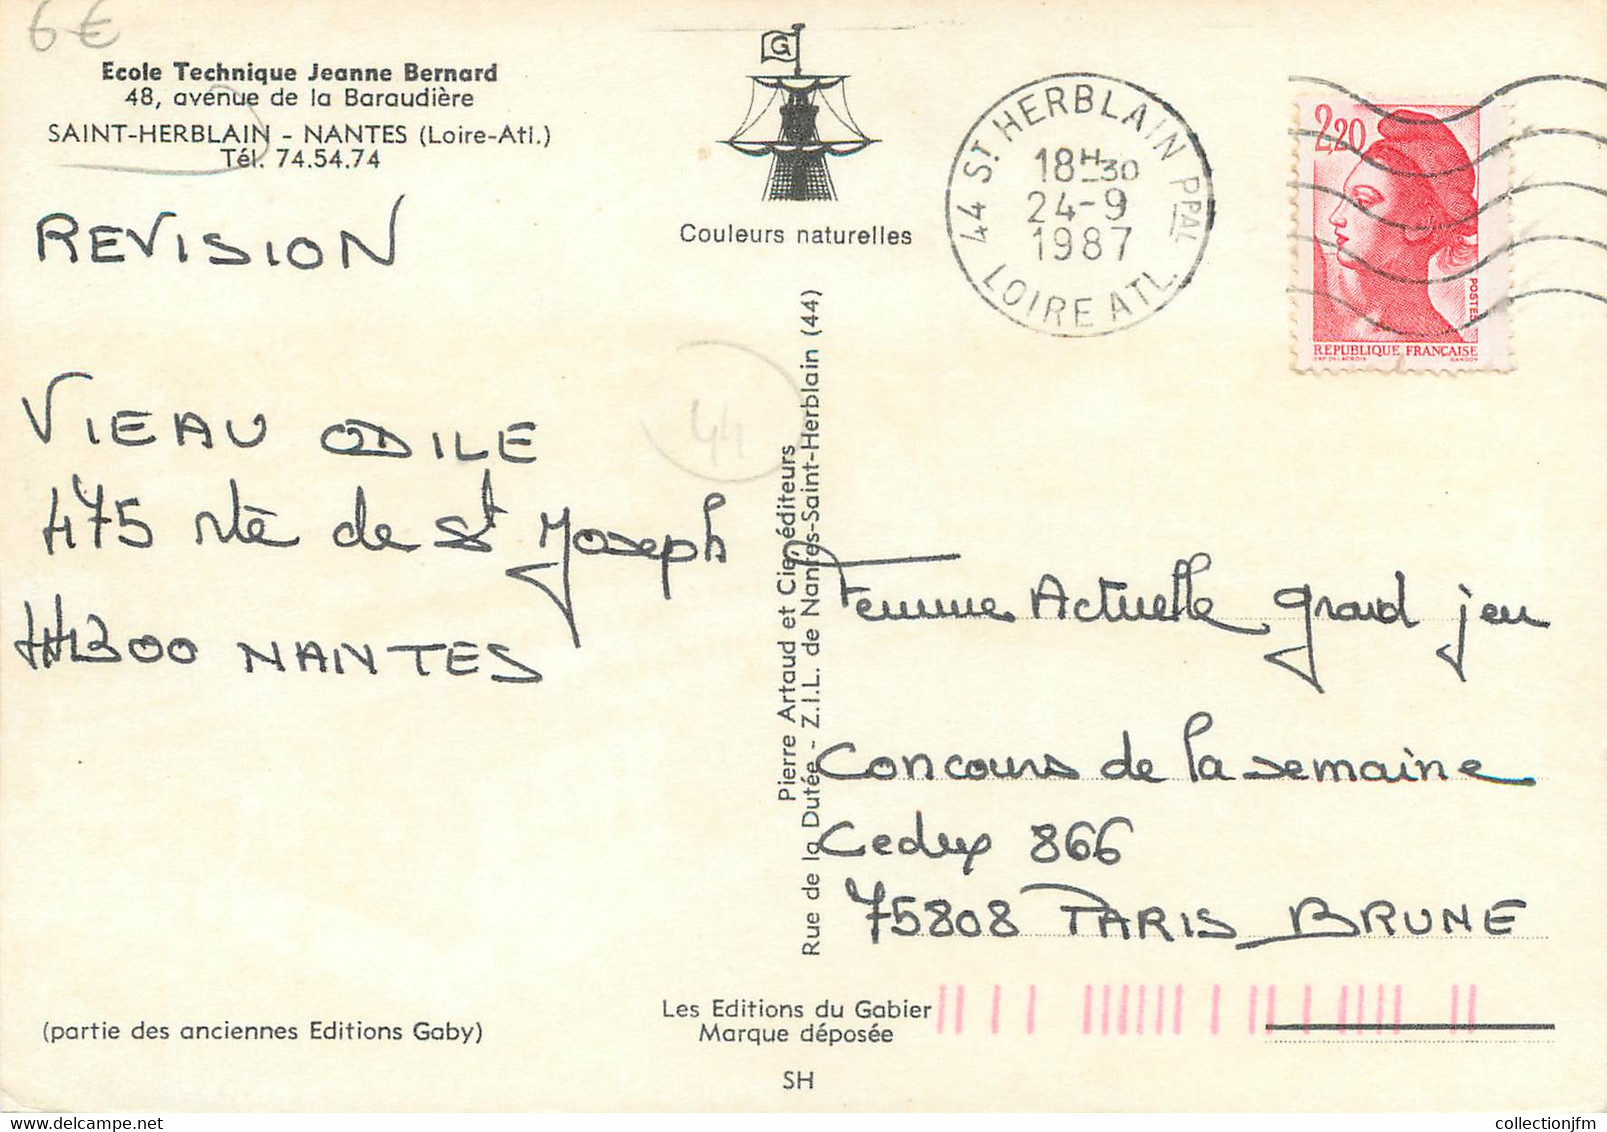 6€
Ecole Technique Jeanne Bernard
48, avenue de la Baraudière
SAINT-HERBLAIN - NANTES (Loire-Atl.)
Tél. 74.54.74
G
Couleurs naturelles
44 ST HERBLAIN PPAL
18H30
24-9
1987
LOIRE ATL.
2,20
POSTES
REPUBLIQUE FRANÇAISE
DAP. DELACROIX GANDON
REVISION
VIEAU ODILE
475 rte de St Joseph
44300 NANTES
44
Pierre Artaud et Cie, éditeurs
Rue de la Dutée - Z.I.L. de Nantes-Saint-Herblain (44)
Femme Actuelle grand jeu
Concours de la semaine
Cedex 866
75808 PARIS BRUNE
(partie des anciennes Editions Gaby)
Les Editions du Gabier
Marque déposée
SH
collectionjfm